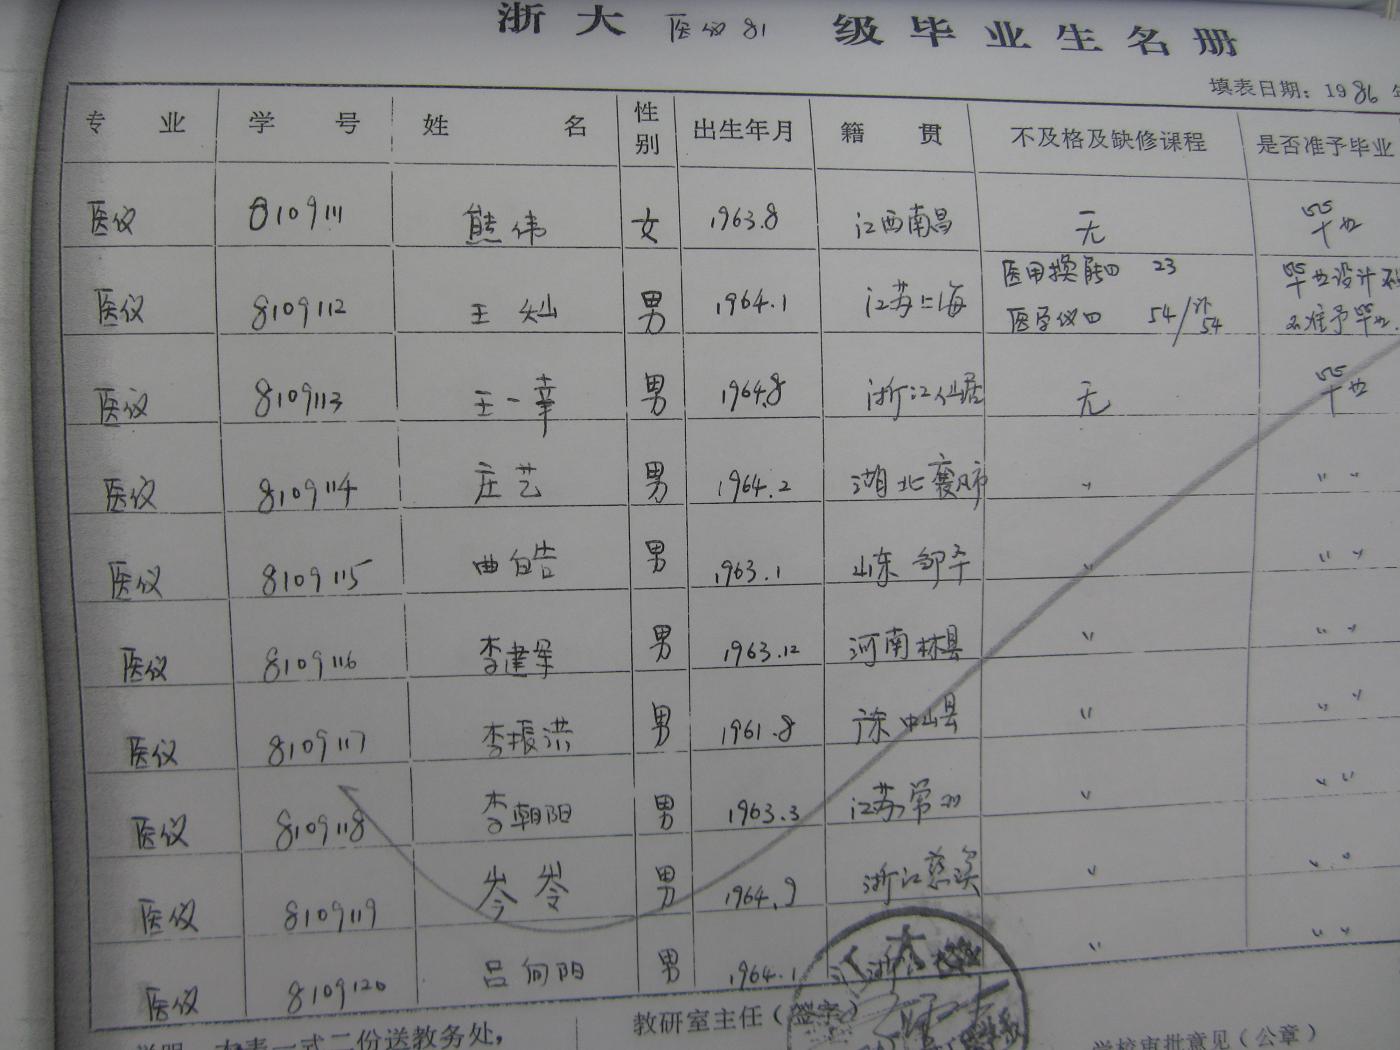 浙大 医仪81 级毕业生名册
填表日期：1986年
专业 学号 姓名 性别 出生年月 籍贯 不及格及缺修课程 是否准予毕业
医仪 8109111 熊伟 女 1963.8 江西南昌 无 毕业
医仪 8109112 王灿 男 1964.1 江苏上海 医用换能四 23 毕业设计不
医学仪四 54/补54 不准予毕业.
医仪 8109113 王一幸 男 1964.8 浙江仙居 无 毕业
医仪 8109114 庄艺 男 1964.2 湖北襄 〃 〃 〃
医仪 8109115 曲皓 男 1963.1 山东邹平 〃 〃 〃
医仪 8109116 李建军 男 1963.12 河南林县 〃 〃 〃
医仪 8109117 李振洪 男 1961.8 广东中山县 〃 〃 〃
医仪 8109118 李朝阳 男 1963.3 江苏常州 〃 〃 〃
医仪 8109119 岑岺 男 1964.9 浙江慈溪 〃 〃 〃
医仪 8109120 吕向阳 男 1964.1 〃 〃 〃
教研室主任（签字）
说明：本表一式二份送教务处，
学校审批意见（公章）